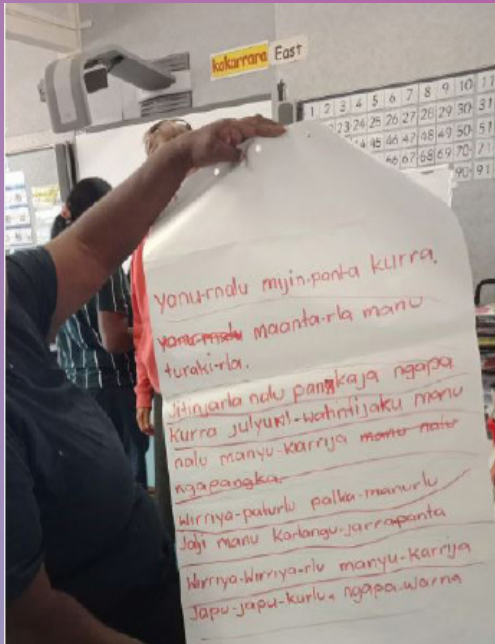 kakarrara East
1 2 3 4 5 6 7 8 9 10 11
23 24 25 26 27 28 29 30 31
45 46 47 48 49 50 51
66 67 68 69 70 71
90 91
yanu-rnalu myin-panta kurra.
maanta-rla manu
turaki-rla.
Jitinjarla nalu pangkaja ngapa
kurra julyurl-wahntijaku manu
nalu manyu-karrija manu nalu
ngapangka.
Wirriya-paturlu palka-manurlu
Jalji manu karlangu-jarrapanta
Wirriya-Wirriya-rlu manyu-karrija
Japu-japu-kurlu. ngapa-warna